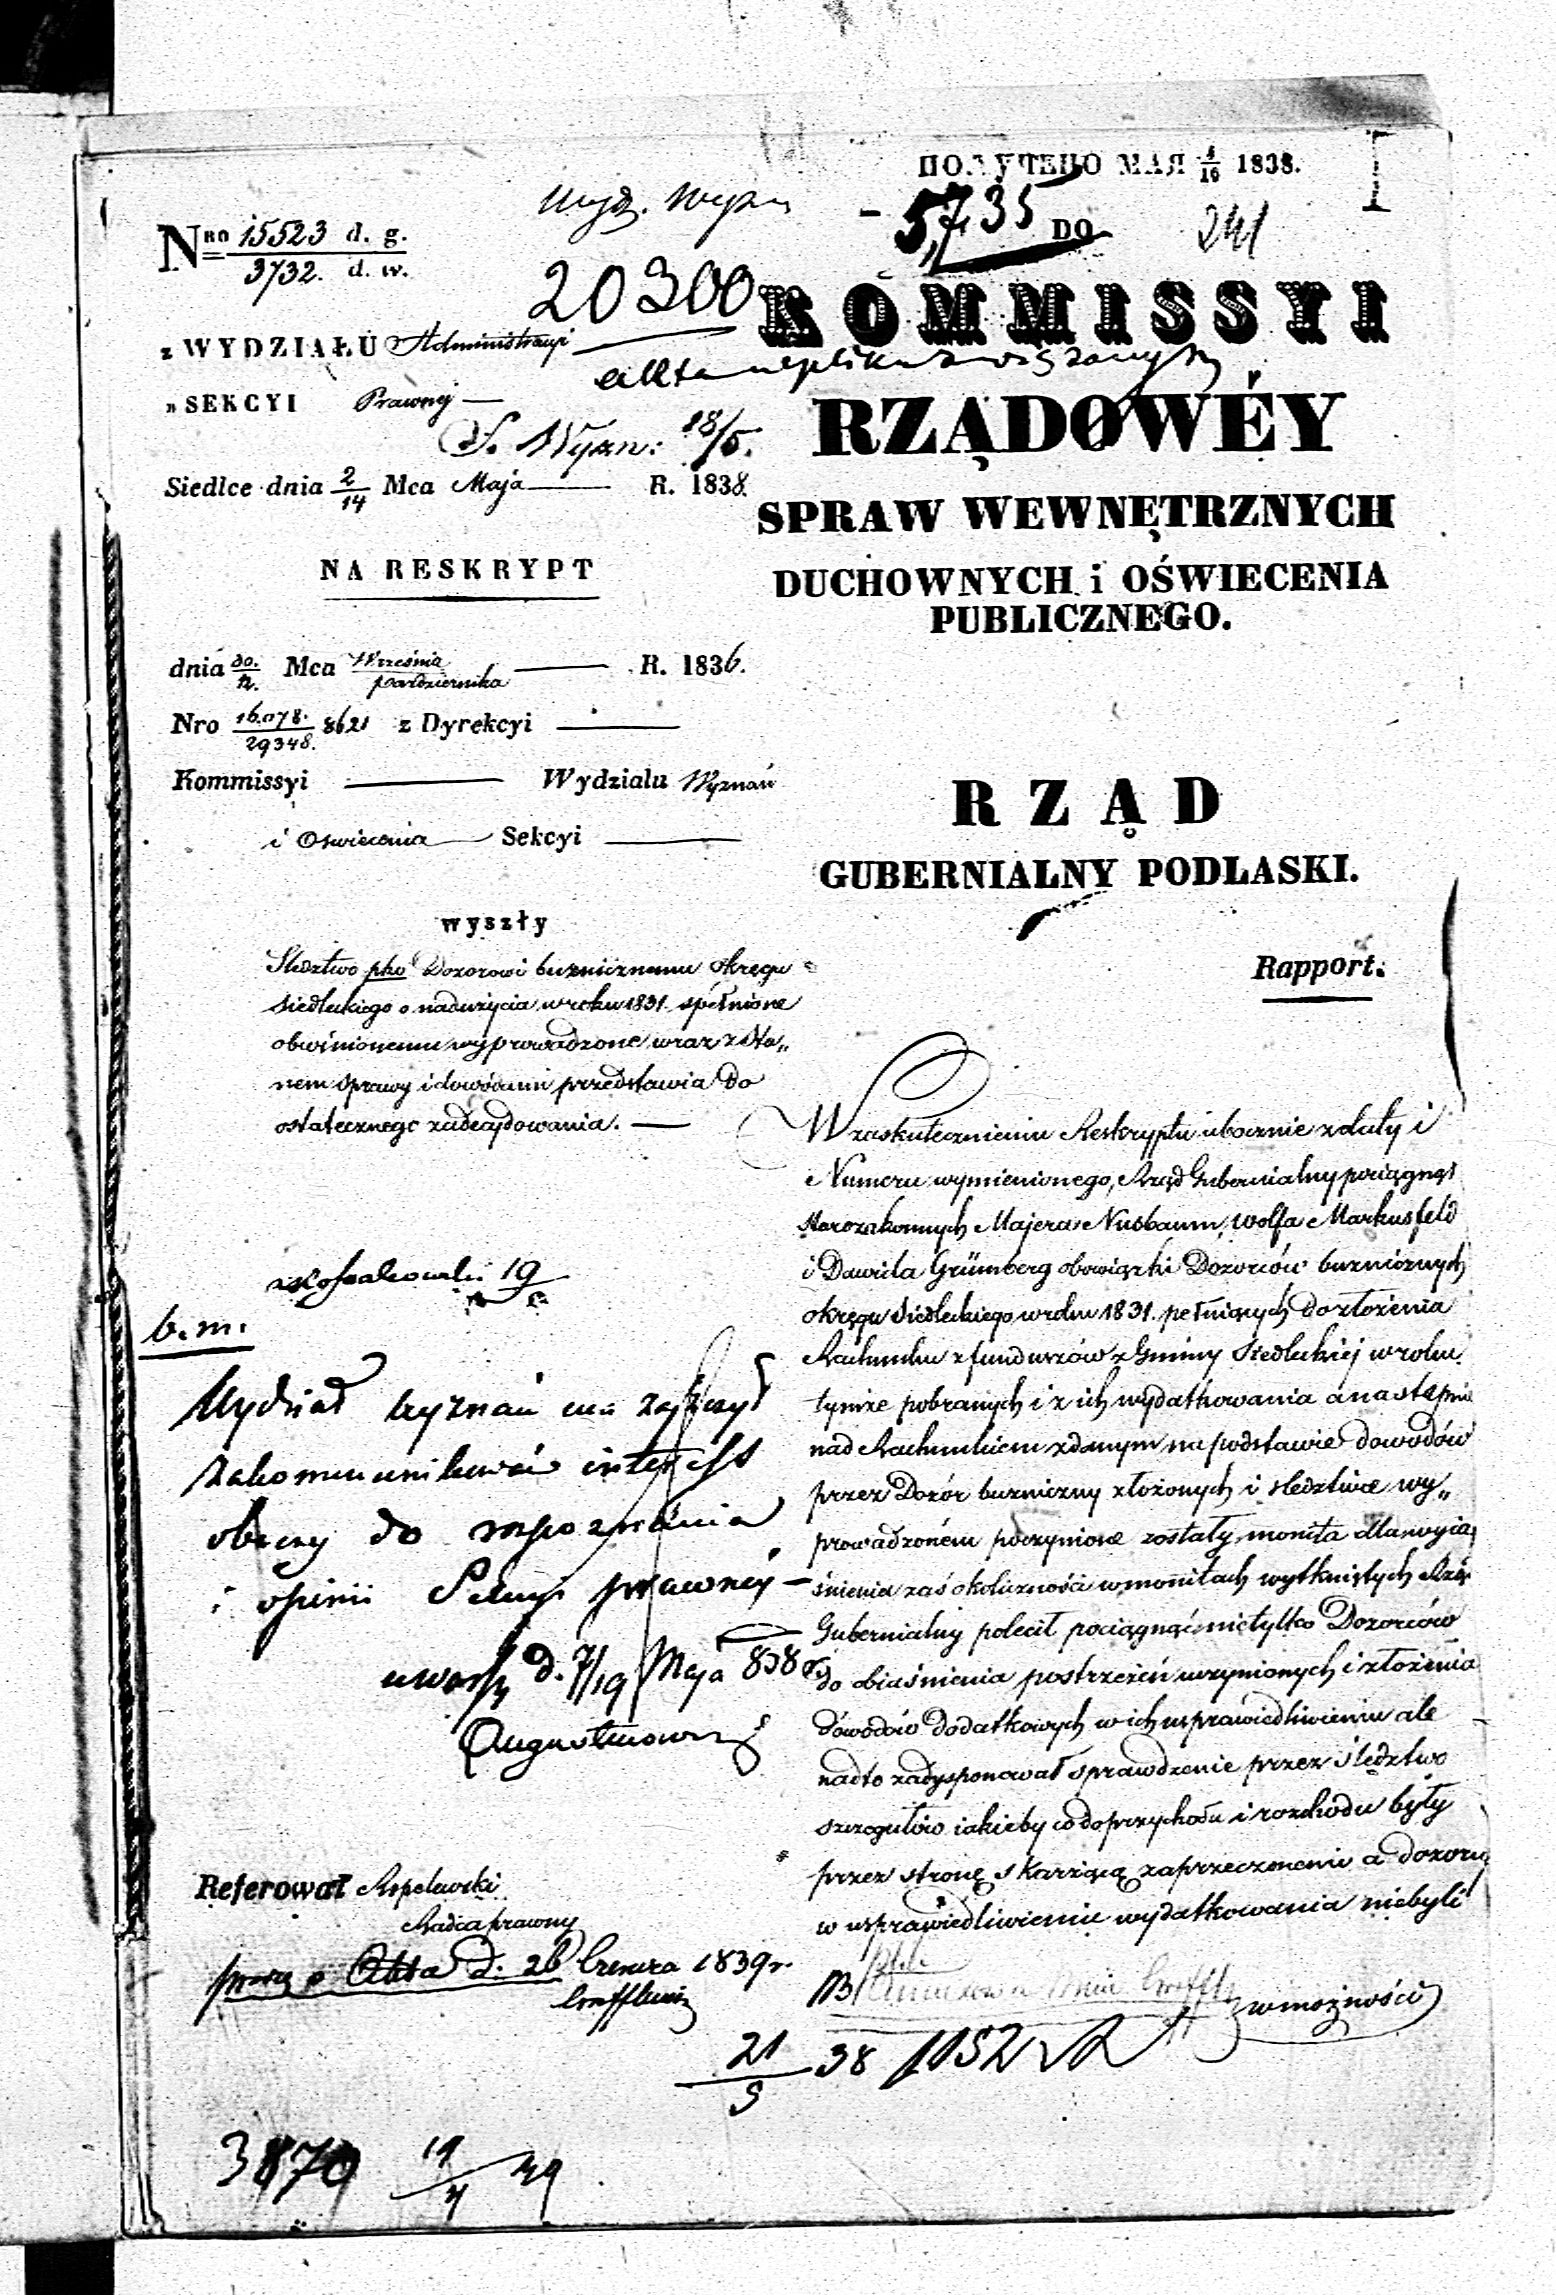 ПОЛУЧЕНО МАЯ 4/16 1838.
Wydz. Wyzn
5,735
241
Nro 15523 d. g.
3732. d. w.
20300
DO
KOMMISSYI
z WYDZIAŁU Administracyi
akta w pliku związanym
» SEKCYI Prawnej —
RZĄDOWÉY
S. Wyzn: 18/5.
Siedlce dnia 2/14 Mca Maja — R. 1838.
SPRAW WEWNĘTRZNYCH
DUCHOWNYCH i OŚWIECENIA
PUBLICZNEGO.
NA RESKRYPT
dnia 30./12. Mca Września/października — R. 1836.
Nro 16078./29348. 8621 z Dyrekcyi —
Kommissyi — Wydziału Wyznań
i Oświecenia — Sekcyi —
RZĄD
GUBERNIALNY PODLASKI.
wyszły
Śledztwo pko Dozorowi bużnicznemu okręgu
Siedleckiego o nadużycia w roku 1831 spełnione
obwinionemu wyprowadzone wraz z Sta„
nem sprawy i dowodami przedstawia do
ostatecznego zadecydowania. —
Rapport.
W zaskutecznieniu Reskryptu ubocznie z daty i
Numeru wymienionego, Rząd Gubernialny pociągnął
starozakonnych Majera Nusbaum, Wolfa Markusfeld
i Dawida Grünberg obowiązki Dozorców bużnicznych
okręgu Siedleckiego w roku 1831. pełniących do złożenia
Rachunku z funduszów z Gminy Siedleckiej w roku
tymże pobranych i z ich wydatkowania a następnie
nad Rachunkiem zdanym na podstawie dowodów
przez Dozór bużniczny złożonych i śledztwie wy„
prowadzoném poczynione zostały monita dla wyja„
śnienia zaś okoliczności w monitach wytkniętych Rząd
Gubernialny polecił pociągnąć nietylko Dozorców
do obiaśnienia postrzeżeń uczynionych i złożenia
dowodów dodatkowych w ich usprawiedliwieniu ale
nadto zadysponował sprawdzenie przez śledztwo
szczegułów iakieby co do przychodu i rozchodu były
przez stronę skarżącą zaprzeczonemi a dozorcy
w usprawiedliwieniu wydatkowania niebyli
w możności
19
b. m.
Wydział wyznań ma zaszczyt
zakommunikować interess
obecny do rozpoznania
i opinii Sekcyi prawnéj —
d. 7/19 Maja 838 r.
Referował
Radca prawny
Akta d. 26 Czerwca 1839 r.
21/5 38 1152
3870 19/4 39